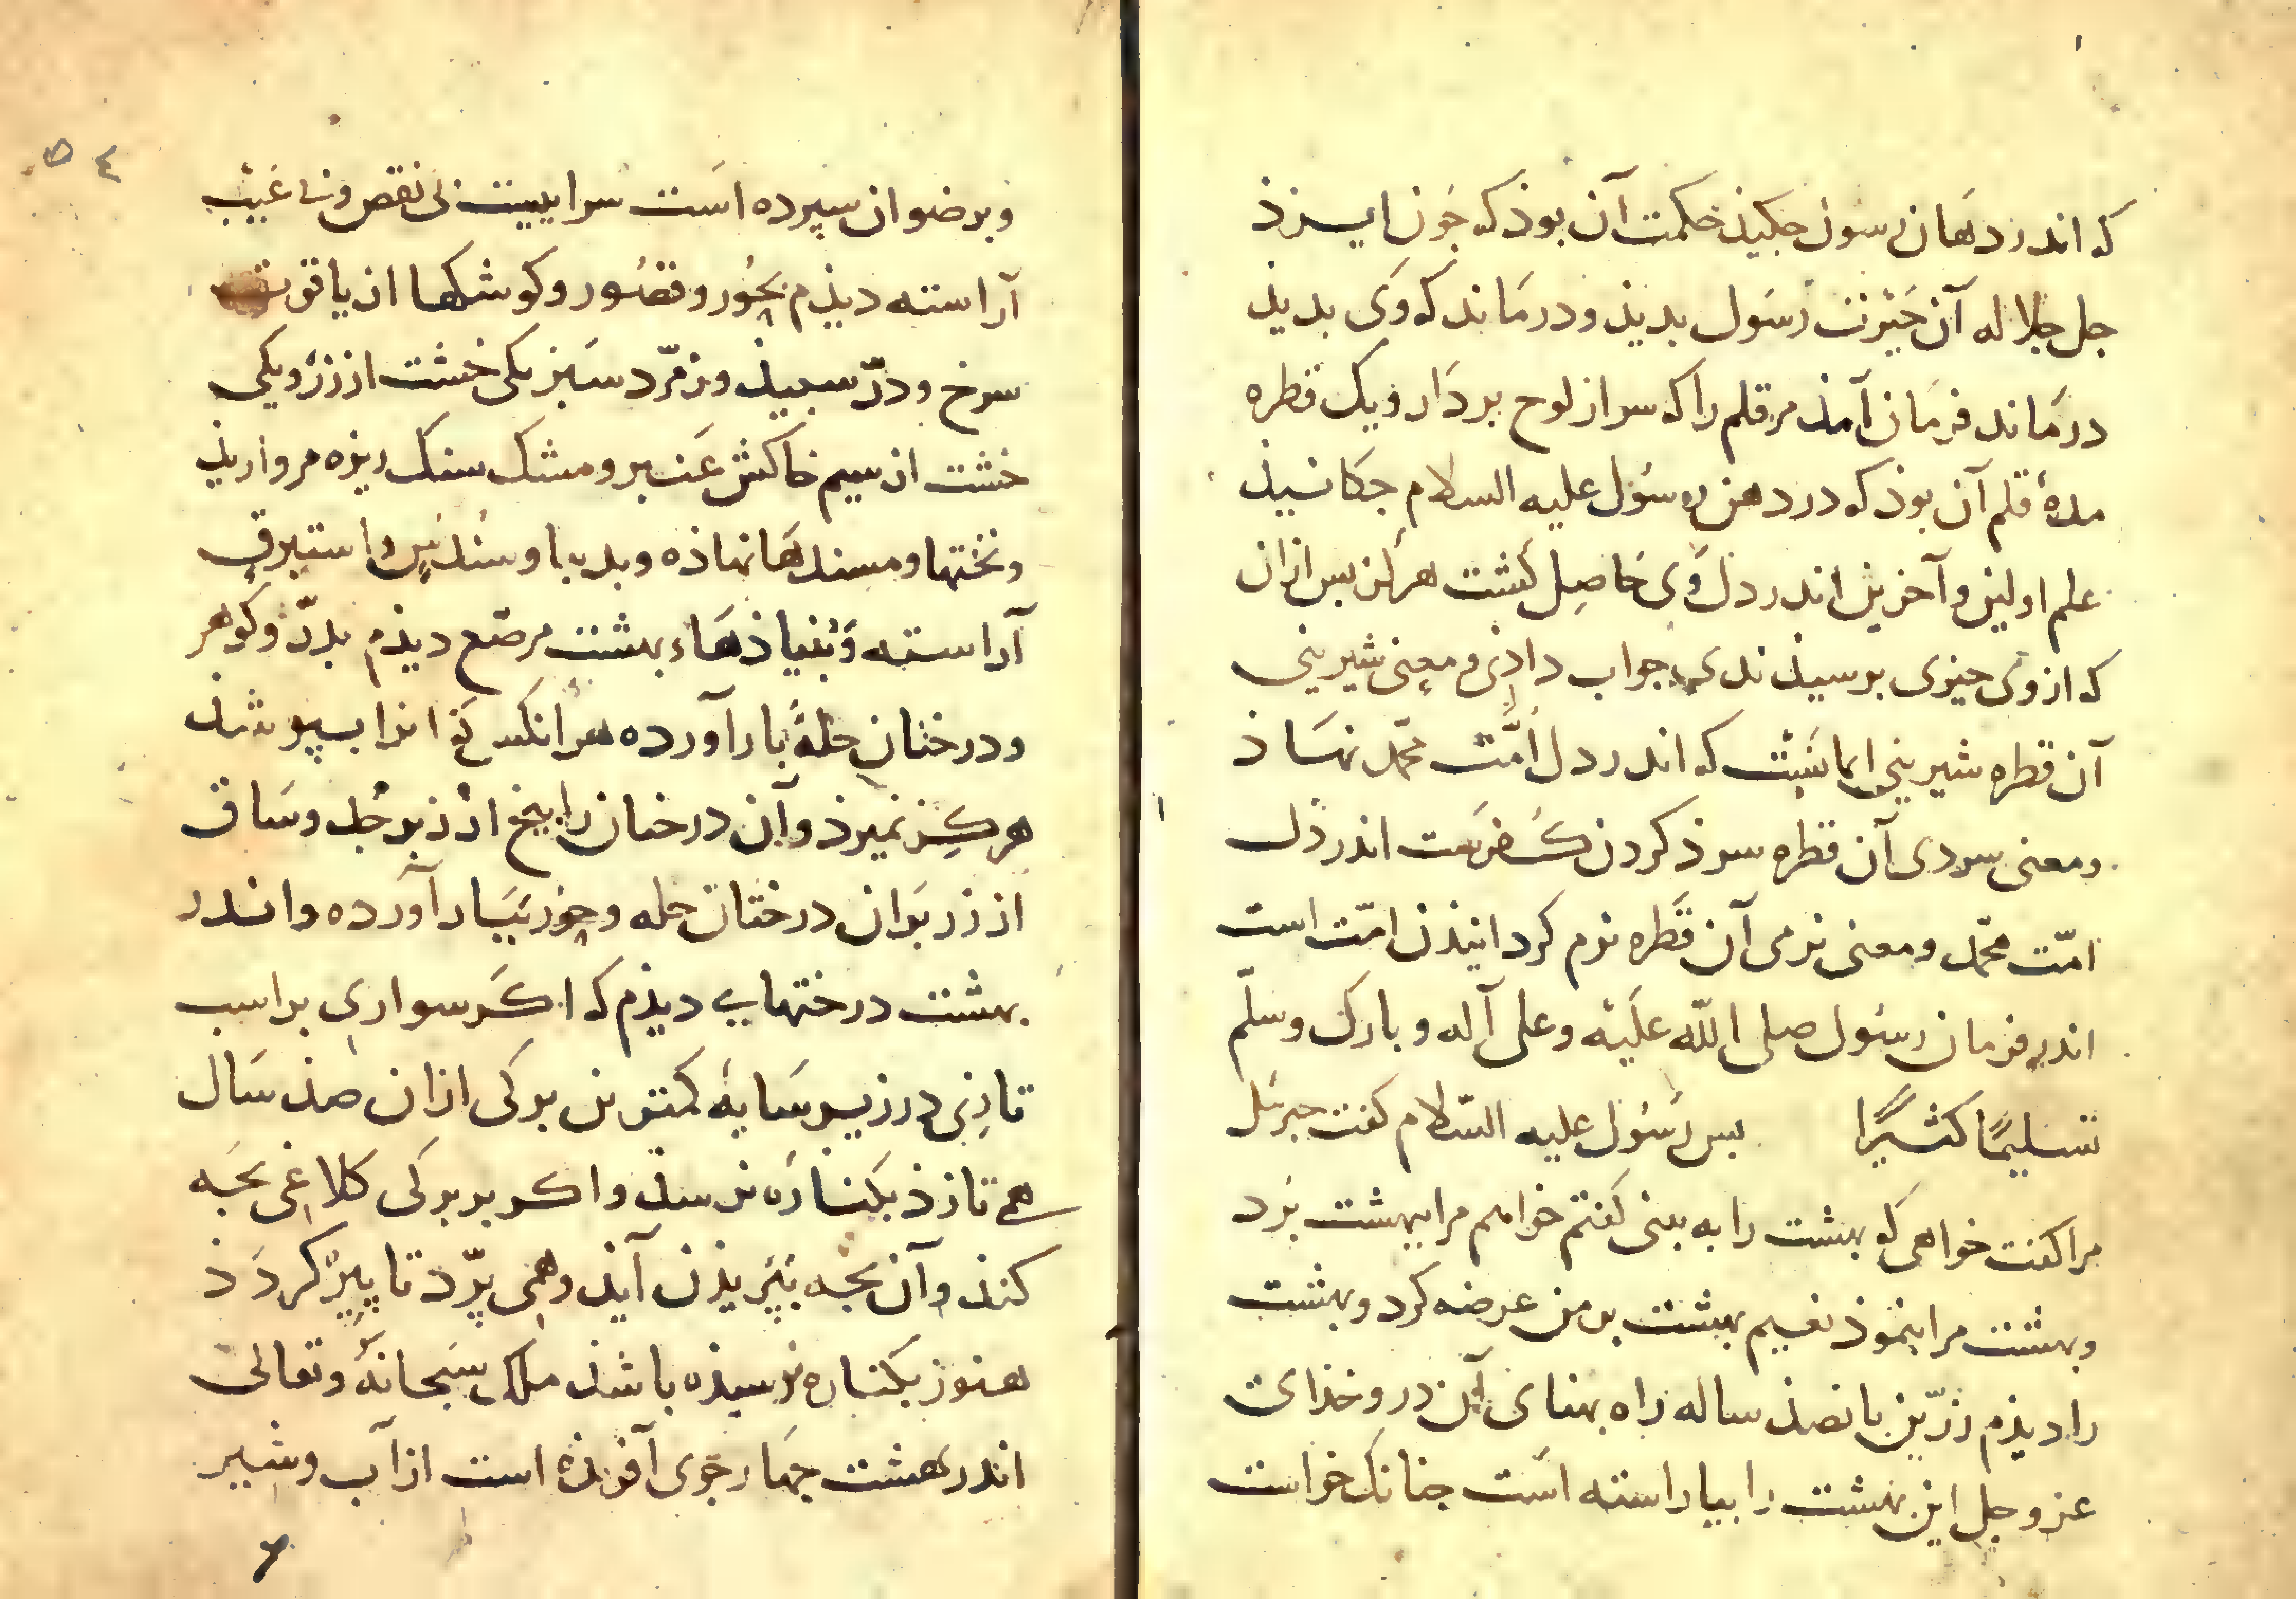 که اندر دهان رسول جکیذ حکمت آن بوذ که جون ایـزذ
جل جلاله آن حَیْرت رسَول بدیذ و درمَاند که وَی بدیذ
درمَاند فرمَان آمذ مر قلم را که سر از لوح بردَار و یک قطره
مدهٔ قلم آن بوذ که در دهن رسُول علیه السلام جکانیذ
علم اولین و آخرین اندر دل وَی حَاصِل کشت هر کز بس ازان
که از وی جیزی برسیذندی جواب داذی و معنی شیرینی
آن قطره شیرینی ایمانست که اندر دل اُمَّت محمّد نهَاذ
و معنی سردی آن قطره سرذ کردن کفرست اندر دل
امّت محمّد و معنی نرمی آن قَطره نرم کردانیذن امّت است
اندر فرمان رسُول صلی الله علَیْه و علی آله و بارک و سلّم
تسلیمًا کثیرًا بس رسُول علیه السّلام کفت جبرئل
مرا کفت خواهی که بهشت را به بینی کفتم خواهم مرا ببهشت برَد
و بهشت مرا بنموذ نعیم بهشت بر من عرضه کرد و بهشت
را دیذم زرّین بانصذ ساله راه بهنای آن در و خذای
عز و جل این بهشت را بیاراسته است جنانک خواست
۵۴
و برضوان سپرده است سراییست بی نقص و بی عَیْب
آراسته دیذم بحُور و قصُور و کوشکها از یاقوت
سرخ و درّ سبیذ و زمرّد سَبز یکی خشت از زر و یکی
خشت از سیم خاکش عَنـبر و مشک سنک ریزه مروارید
و تختها و مسندهَا نهاذه و بدیبا و سُندُس و استبرق
آراسته و بُنیاذهَاء بهشت مرصّع دیذم بدرّ و کوهر
و درختان حلهٔ بار آورده هر آنکس که انرا ببپوشذ
هر کز نمیرذ و آن درختان را بیخ از زبرجد و سَاق
از زر بَران درختان حله و حور ببَار آورده و اندر
بهشت درختهایی دیذم که اکَر سواری بر اسب
تازی در زیـر سَایهٔ کمترین برکی ازان صذ سَال
همی تازذ بکنارَه نرسذ و اکر بر برکی کلاغی بجَه
کنذ و آن بجه بپَریذن آیذ و همی پرّد تا پیر کردَذ
هنوز بکناره نرسیذه باشذ ملک سبحانهٔ و تعالی
اندر بهشت جهَار جوی آفریذه است از آب و شیر